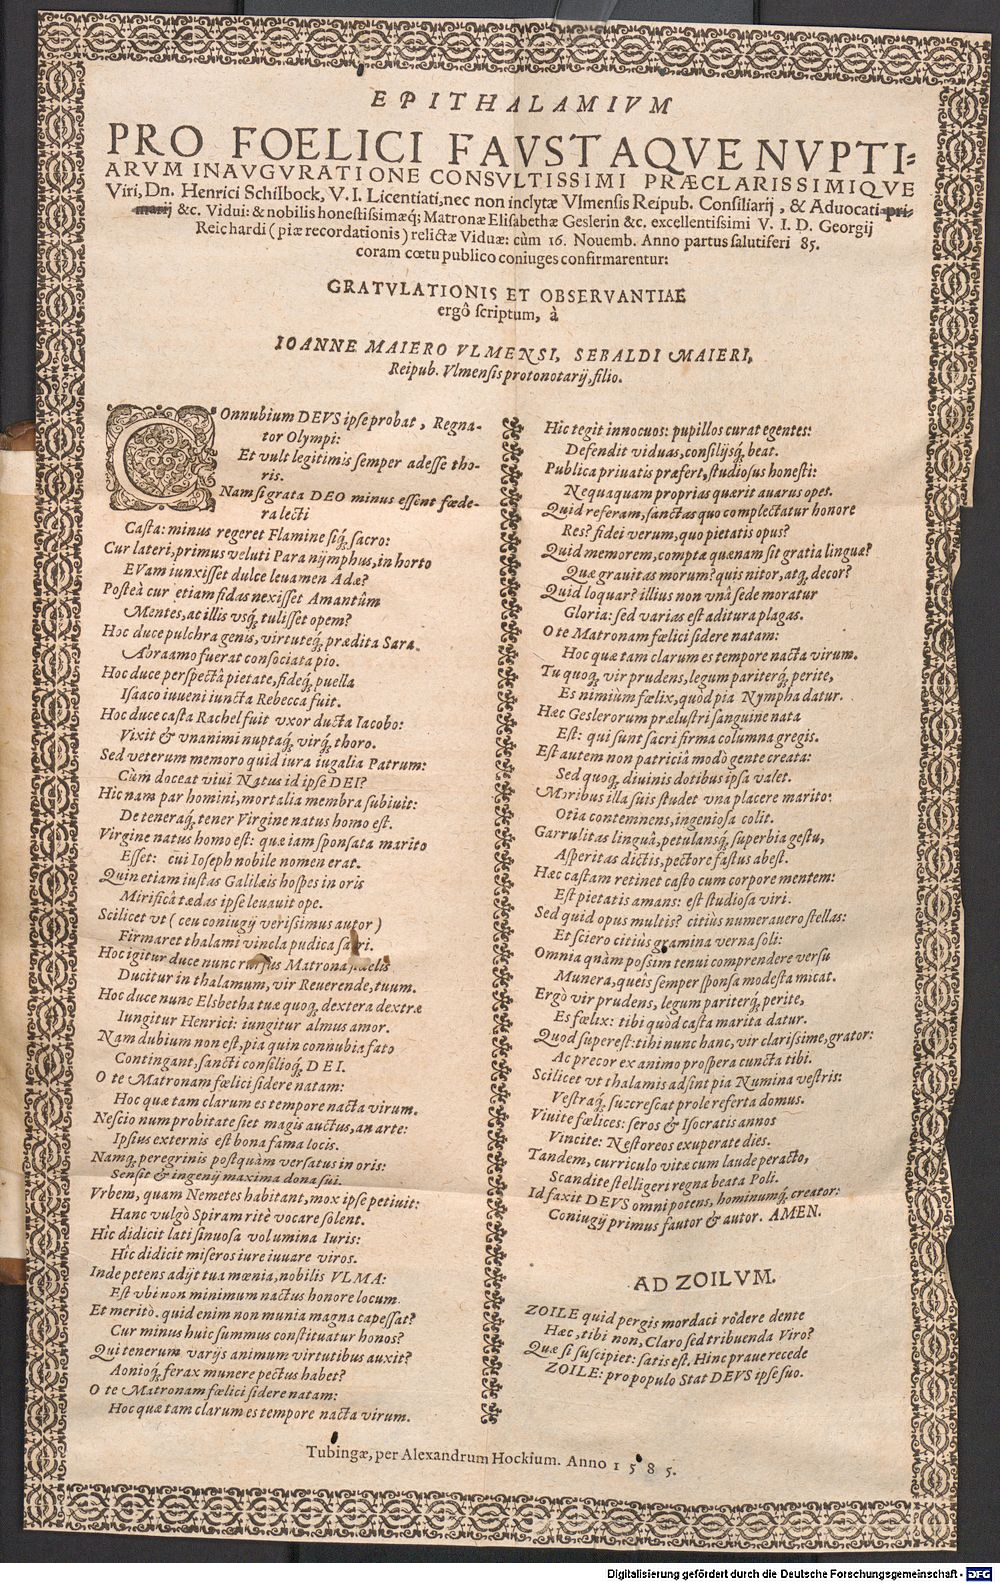 EPITHALAMIVM
PRO FOELICI FAVSTAQVE NVPTI=
ARVM INAVGVRATIONE CONSVLTISSIMI PRÆCLARISSIMIQVE
Viri, Dn. Henrici Schilbock, V. I. Licentiati, nec non inclytæ Vlmensis Reipub. Consiliarij, & Aduocati pri-
marij &c. Vidui: & nobilis honestissimæq́; Matronæ Elisabethæ Geslerin &c. excellentissimi V. I. D. Georgij
Reichardi (piæ recordationis) relictæ Viduæ: cùm 16. Nouemb. Anno partus salutiferi 85.
coram cœtu publico coniuges confirmarentur:
GRATVLATIONIS ET OBSERVANTIAE
ergô scriptum, à
IOANNE MAIERO VLMENSI, SEBALDI MAIERI,
Reipub. Vlmensis protonotarij, filio.
COnnubium DEVS ipse probat, Regna-
tor Olympi:
Et vult legitimis semper adesse tho-
ris.
Nam si grata DEO minus essent fœde-
ra lecti
Casta: minus regeret Flamine siq́; sacro:
Cur lateri, primus veluti Paranymphus, in horto
EVam iunxisset dulce leuamen Adæ?
Posteà cur etiam fidas nexisset Amantûm
Mentes, at illis vsq́; tulisset opem?
Hoc duce pulchra genis, virtuteq́; prædita Sara
Abraamo fuerat consociata pio.
Hoc duce perspectâ pietate, fideq́; puella
Isaaco iuueni iuncta Rebecca fuit.
Hoc duce casta Rachel fuit vxor ducta Iacobo:
Vixit & vnanimi nuptaq́; virq́; thoro.
Sed veterum memoro quid iura iugalia Patrum:
Cùm doceat viui Natus id ipse DEI?
Hic nam par homini, mortalia membra subiuit:
De teneraq́; tener Virgine natus homo est.
Virgine natus homo est: quæ iam sponsata marito
Esset: cui Ioseph nobile nomen erat.
Quin etiam iustas Galilæis hospes in oris
Mirificâ tædas ipse leuauit ope.
Scilicet vt (ceu coniugij verissimus autor)
Firmaret thalami vincla pudica sacri.
Hoc igitur duce nunc rursus Matrona fidelis
Ducitur in thalamum, vir Reuerende, tuum.
Hoc duce nunc Elsbetha tuæ quoq́; dextera dextræ
Iungitur Henrici: iungitur almus amor.
Nam dubium non est, pia quin connubia fato
Contingant, sancti consilioq́; DEI.
O te Matronam fœlici sidere natam:
Hoc quæ tam clarum es tempore nacta virum.
Nescio num probitate siet magis auctus, an arte:
Ipsius externis est bona fama locis.
Namq́; peregrinis postquàm versatus in oris:
Sensit & ingenij maxima dona sui.
Vrbem, quam Nemetes habitant, mox ipse petiuit:
Hanc vulgò Spiram ritè vocare solent.
Hîc didicit lati sinuosa volumina Iuris:
Hîc didicit miseros iure iuuare viros.
Inde petens adijt tua mœnia, nobilis VLMA:
Est vbi non minimum nactus honore locum.
Et meritò. quid enim non munia magna capessat?
Cur minus huic summus constituatur honos?
Qui tenerum varijs animum virtutibus auxit?
Aonioq́; ferax munere pectus habet?
O te Matronam fœlici sidere natam:
Hoc quæ tam clarum es tempore nacta virum.
Hic tegit innocuos: pupillos curat egentes:
Defendit viduas, consilijsq́; beat.
Publica priuatis præfert, studiosus honesti:
Nequaquam proprias quærit auarus opes.
Quid referam, sanctas quo complectatur honore
Res? fidei verum, quo pietatis opus?
Quid memorem, comptæ quænam sit gratia linguæ?
Quæ grauitas morum? quis nitor, atq́; decor?
Quid loquar? illius non vnâ sede moratur
Gloria: sed varias est aditura plagas.
O te Matronam fœlici sidere natam:
Hoc quæ tam clarum es tempore nacta virum.
Tu quoq́; vir prudens, legum pariterq́; perite,
Es nimiùm fœlix, quòd pia Nympha datur.
Hæc Geslerorum prælustri sanguine nata
Est: qui sunt sacri firma columna gregis.
Est autem non patriciâ modò gente creata:
Sed quoq́; diuinis dotibus ipsa valet.
Moribus illa suis studet vna placere marito:
Otia contemnens, ingeniosa colit.
Garrulitas linguâ, petulansq́; superbia gestu,
Asperitas dictis, pectore fastus abest.
Hæc castam retinet casto cum corpore mentem:
Est pietatis amans: est studiosa viri.
Sed quid opus multis? citiùs numerauero stellas:
Et sciero citiùs gramina verna soli:
Omnia quàm possim tenui comprendere versu
Munera, queis semper sponsa modesta micat.
Ergò vir prudens, legum pariterq́; perite,
Es fœlix: tibi quòd casta marita datur.
Quod superest: tibi nunc hanc, vir clarissime, grator:
Ac precor ex animo prospera cuncta tibi.
Scilicet vt thalamis adsint pia Numina vestris:
Vestraq́; succrescat prole referta domus.
Viuite fœlices: seros & Isocratis annos
Vincite: Nestoreos exuperate dies.
Tandem, curriculo vitæ cum laude peracto,
Scandite stelligeri regna beata Poli.
Id faxit DEVS omnipotens, hominumq́; creator:
Coniugij primus fautor & autor. AMEN.
AD ZOILVM.
ZOILE quid pergis mordaci rodere dente
Hæc, tibi non, Claro sed tribuenda Viro?
Quæ si suscipiet: satis est, Hinc praue recede
ZOILE: pro populo Stat DEVS ipse suo.
Tubingæ, per Alexandrum Hockium. Anno 1585.
Digitalisierung gefördert durch die Deutsche Forschungsgemeinschaft - DFG